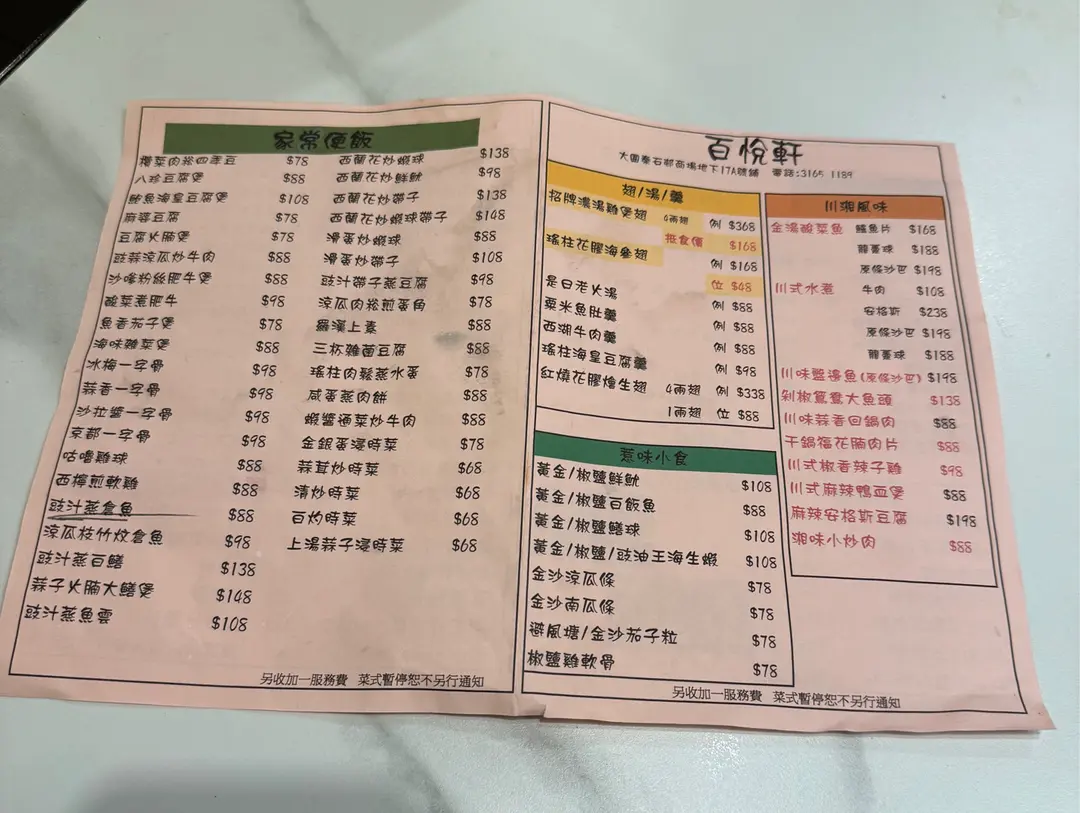 家常便飯
欖菜肉崧四季豆 $78
八珍豆腐煲 $88
鮑魚海皇豆腐煲 $108
麻婆豆腐 $78
豆腐火腩煲 $78
豉蒜涼瓜炒牛肉 $88
沙嗲粉絲肥牛煲 $88
酸菜煮肥牛 $98
魚香茄子煲 $78
海味雜菜煲 $88
冰梅一字骨 $98
蒜香一字骨 $98
沙拉醬一字骨 $98
京都一字骨 $98
咕嚕雞球 $88
西檸煎軟雞 $88
豉汁蒸倉魚 $88
涼瓜枝竹炆倉魚 $98
豉汁蒸白鱔 $138
蒜子火腩大鱔煲 $148
豉汁蒸魚雲 $108
西蘭花炒蝦球 $138
西蘭花炒鮮魷 $98
西蘭花炒帶子 $138
西蘭花炒蝦球帶子 $148
滑蛋炒蝦球 $88
滑蛋炒帶子 $108
豉汁帶子蒸豆腐 $98
涼瓜肉崧煎蛋角 $78
羅漢上素 $88
三杯雜菌豆腐 $88
瑤柱肉鬆蒸水蛋 $78
咸蛋蒸肉餅 $88
蝦醬通菜炒牛肉 $88
金銀蛋浸時菜 $78
蒜茸炒時菜 $68
清炒時菜 $68
百灼時菜 $68
上湯蒜子浸時菜 $68
另收加一服務費 菜式暫停恕不另行通知
百悅軒
大圍秦石邨商場地下17A號舖 電話:3165 1189
翅/湯/羹
招牌濃湯雞煲翅 4兩翅 例 $368
抵食價 $168
瑤柱花膠海參翅 例 $168
位 $48
是日老火湯 例 $88
粟米魚肚羹 例 $88
西湖牛肉羹 例 $88
瑤柱海皇豆腐羹 例 $98
紅燒花膠燴生翅 4兩翅 例 $338
1兩翅 位 $88
惹味小食
黃金/椒鹽鮮魷 $108
黃金/椒鹽百飯魚 $88
黃金/椒鹽鱔球 $108
黃金/椒鹽/豉油王海生蝦 $108
金沙涼瓜條 $78
金沙南瓜條 $78
避風塘/金沙茄子粒 $78
椒鹽雞軟骨 $78
川湘風味
金湯酸菜魚 鱸魚片 $168
龍躉球 $188
原條沙巴 $198
川式水煮 牛肉 $108
安格斯 $238
原條沙巴 $198
龍躉球 $188
川味盤邊魚(原條沙巴) $198
剁椒鴛鴦大魚頭 $138
川味蒜香回鍋肉 $88
干鍋福花腩肉片 $88
川式椒香辣子雞 $98
川式麻辣鴨血煲 $88
麻辣安格斯豆腐 $198
湘味小炒肉 $88
另收加一服務費 菜式暫停恕不另行通知